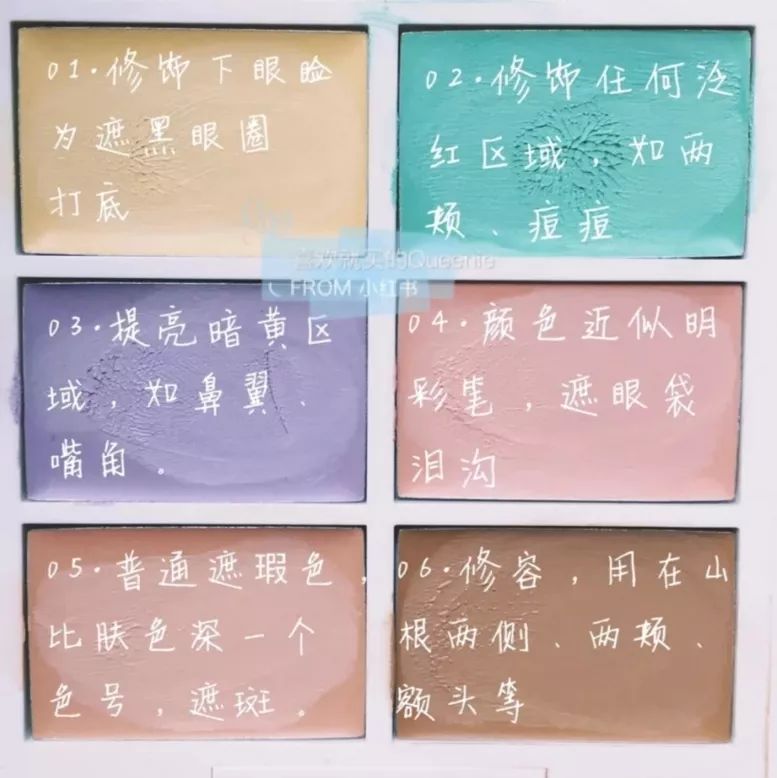 01.修饰下眼睑
为遮黑眼圈
打底
02.修饰任何泛
红区域，如两
颊、痘痘
喜欢就买的Queenie
FROM 小红书
03.提亮暗黄区
域，如鼻翼、
嘴角。
04.颜色近似明
彩笔，遮眼袋
泪沟
05.普通遮瑕色，
比肤色深一个
色号，遮斑。
06.修容，用在山
根两侧、两颊、
额头等